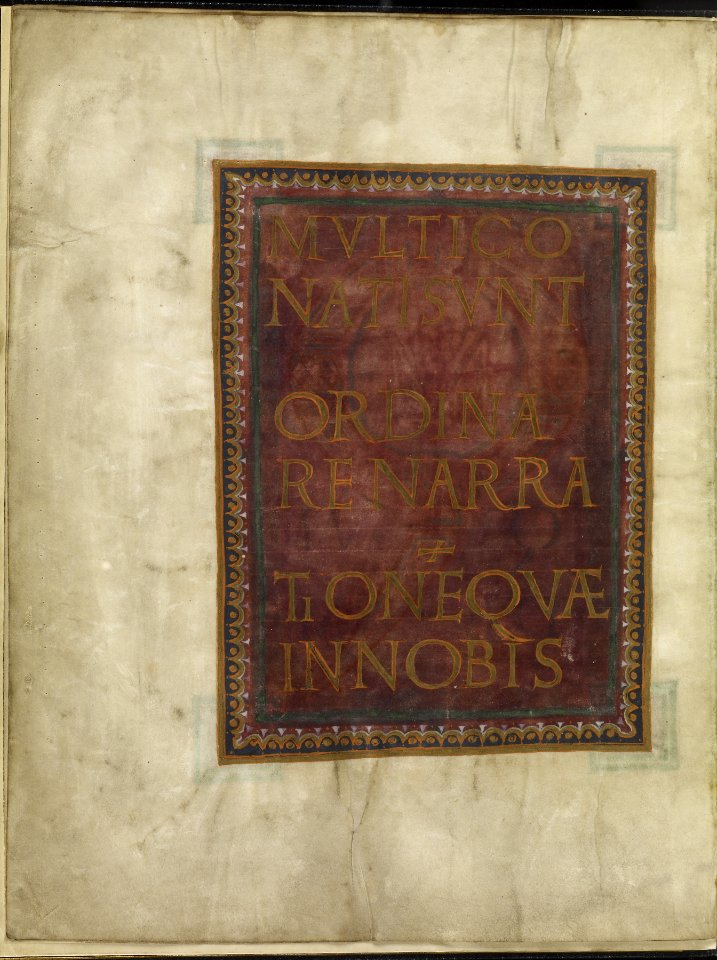 MVLTICO
NATISVNT
ORDINA
RENARRA
TIONEQVÆ
INNOBIS